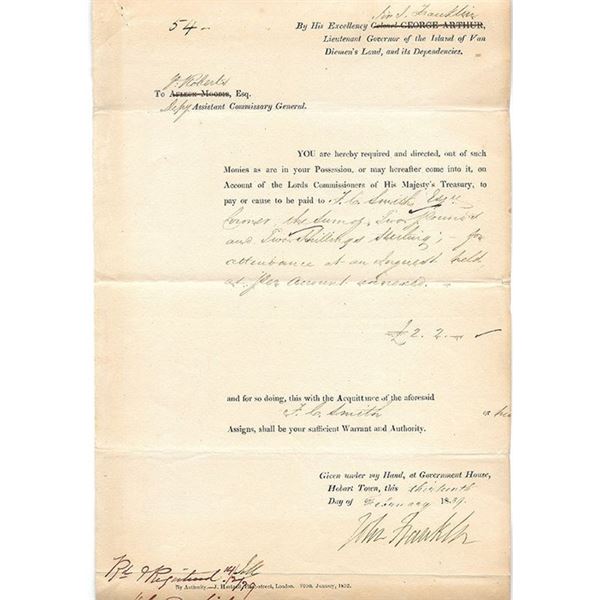 54 - By His Excellency Colonel GEORGE ARTHUR,
Sir J. Franklin
Lieutenant Governor of the Island of Van
Diemen's Land, and its Dependencies.
J. Roberts
To AFLECK MOODIE, Esq.
Depy Assistant Commissary General.
YOU are hereby required and directed, out of such
Monies as are in your Possession, or may hereafter come into it, on
Account of the Lords Commissioners of His Majesty's Treasury, to
pay or cause to be paid to F. C. Smith Esqre
Coroner, the sum of Two Pounds
and Two Shillings Sterling; - for
attendance at an Inquest held
as per Account annexed.
£2. 2. -
and for so doing, this with the Acquittance of the aforesaid
F. C. Smith
Assigns, shall be your sufficient Warrant and Authority.
Given under my Hand, at Government House,
Hobart Town, this thirteenth
Day of February 1839.
John Franklin
Registered
By Authority.—J. Hartnell, London. January, 1832.